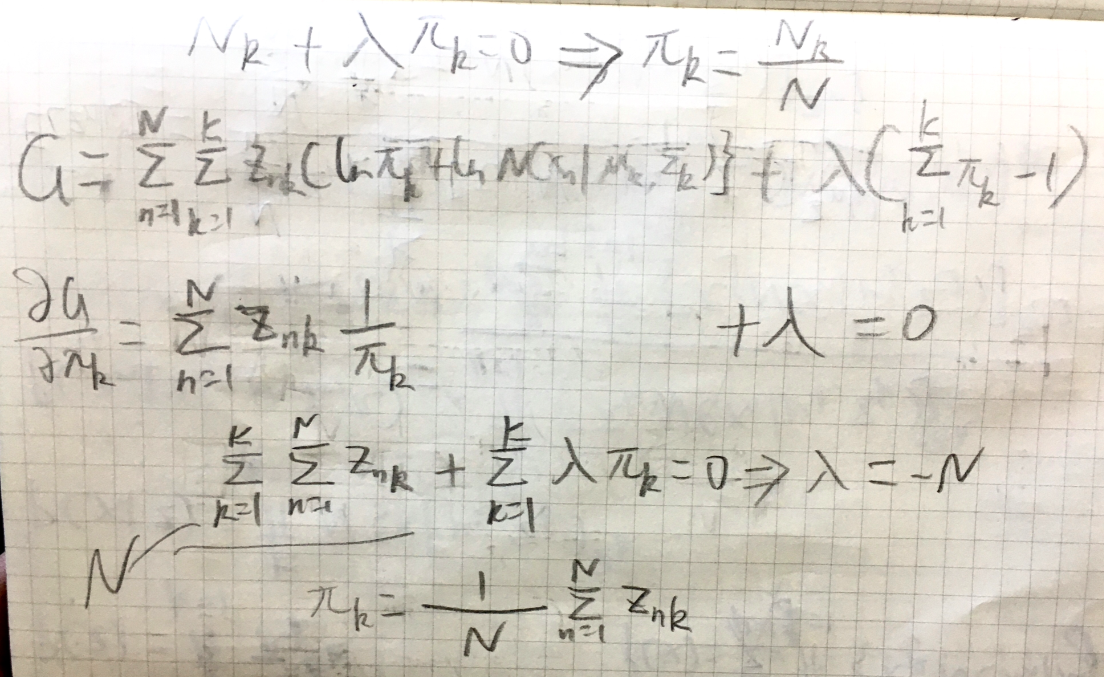 N_k + λπ_k = 0 ⇒ π_k = N_k / N
G = Σ_{n=1}^{N} Σ_{k=1}^{K} z_{nk} { ln π_k + ln N(x_n | μ_k, Σ_k) } + λ( Σ_{k=1}^{K} π_k - 1 )
∂G/∂π_k = Σ_{n=1}^{N} z_{nk} 1/π_k + λ = 0
Σ_{k=1}^{K} Σ_{n=1}^{N} z_{nk} + Σ_{k=1}^{K} λ π_k = 0 ⇒ λ = -N
N
π_k = 1/N Σ_{n=1}^{N} z_{nk}